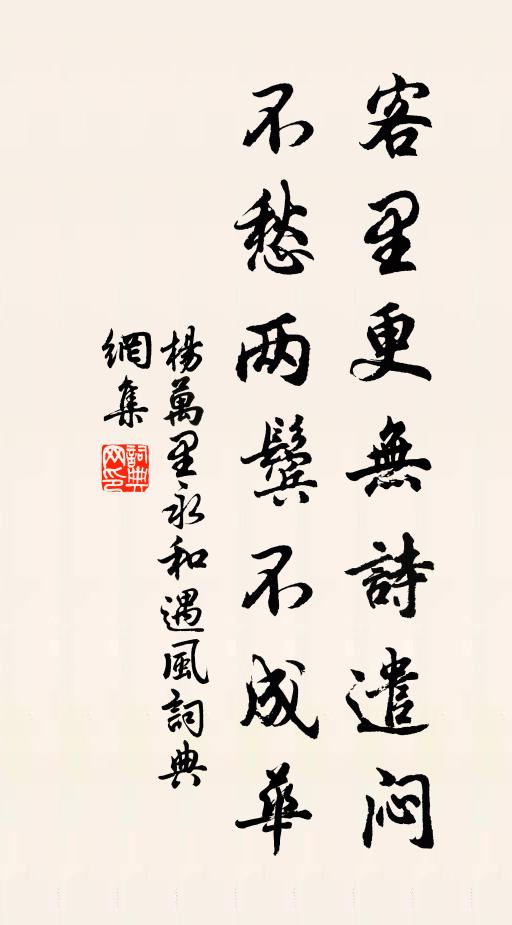 客里更無詩遣闷
不愁两鬓不成華
楊萬里永和遇風詞典
網集
詞典网印